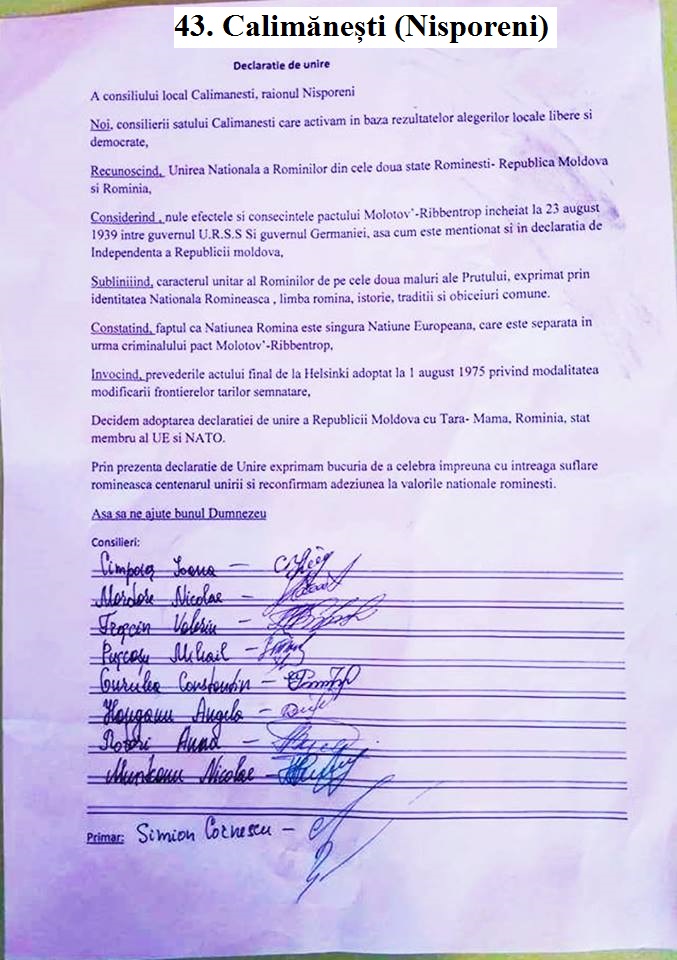 43. Calimănești (Nisporeni)
Declaratie de unire
A consiliului local Calimanesti, raionul Nisporeni
Noi, consilierii satului Calimanesti care activam in baza rezultatelor alegerilor locale libere si
democrate,
Recunoscind, Unirea Nationala a Rominilor din cele doua state Rominesti- Republica Moldova
si Rominia,
Considerind , nule efectele si consecintele pactului Molotov’-Ribbentrop incheiat la 23 august
1939 intre guvernul U.R.S.S Si guvernul Germaniei, asa cum este mentionat si in declaratia de
Independenta a Republicii moldova,
Subliniiind, caracterul unitar al Rominilor de pe cele doua maluri ale Prutului, exprimat prin
identitatea Nationala Romineasca , limba romina, istorie, traditii si obiceiuri comune.
Constatind, faptul ca Natiunea Romina este singura Natiune Europeana, care este separata in
urma criminalului pact Molotov’-Ribbentrop,
Invocind, prevederile actului final de la Helsinki adoptat la 1 august 1975 privind modalitatea
modificarii frontierelor tarilor semnatare,
Decidem adoptarea declaratiei de unire a Republicii Moldova cu Tara- Mama, Rominia, stat
membru al UE si NATO.
Prin prezenta declaratie de Unire exprimam bucuria de a celebra impreuna cu intreaga suflare
romineasca centenarul unirii si reconfirmam adeziunea la valorile nationale rominesti.
Asa sa ne ajute bunul Dumnezeu
Consilieri:
Ioana —
Nicolae —
Valeriu —
Mihail —
Constantin —
Angela —
Anna —
Munteanu Nicolae —
Primar: Simion Cornescu —